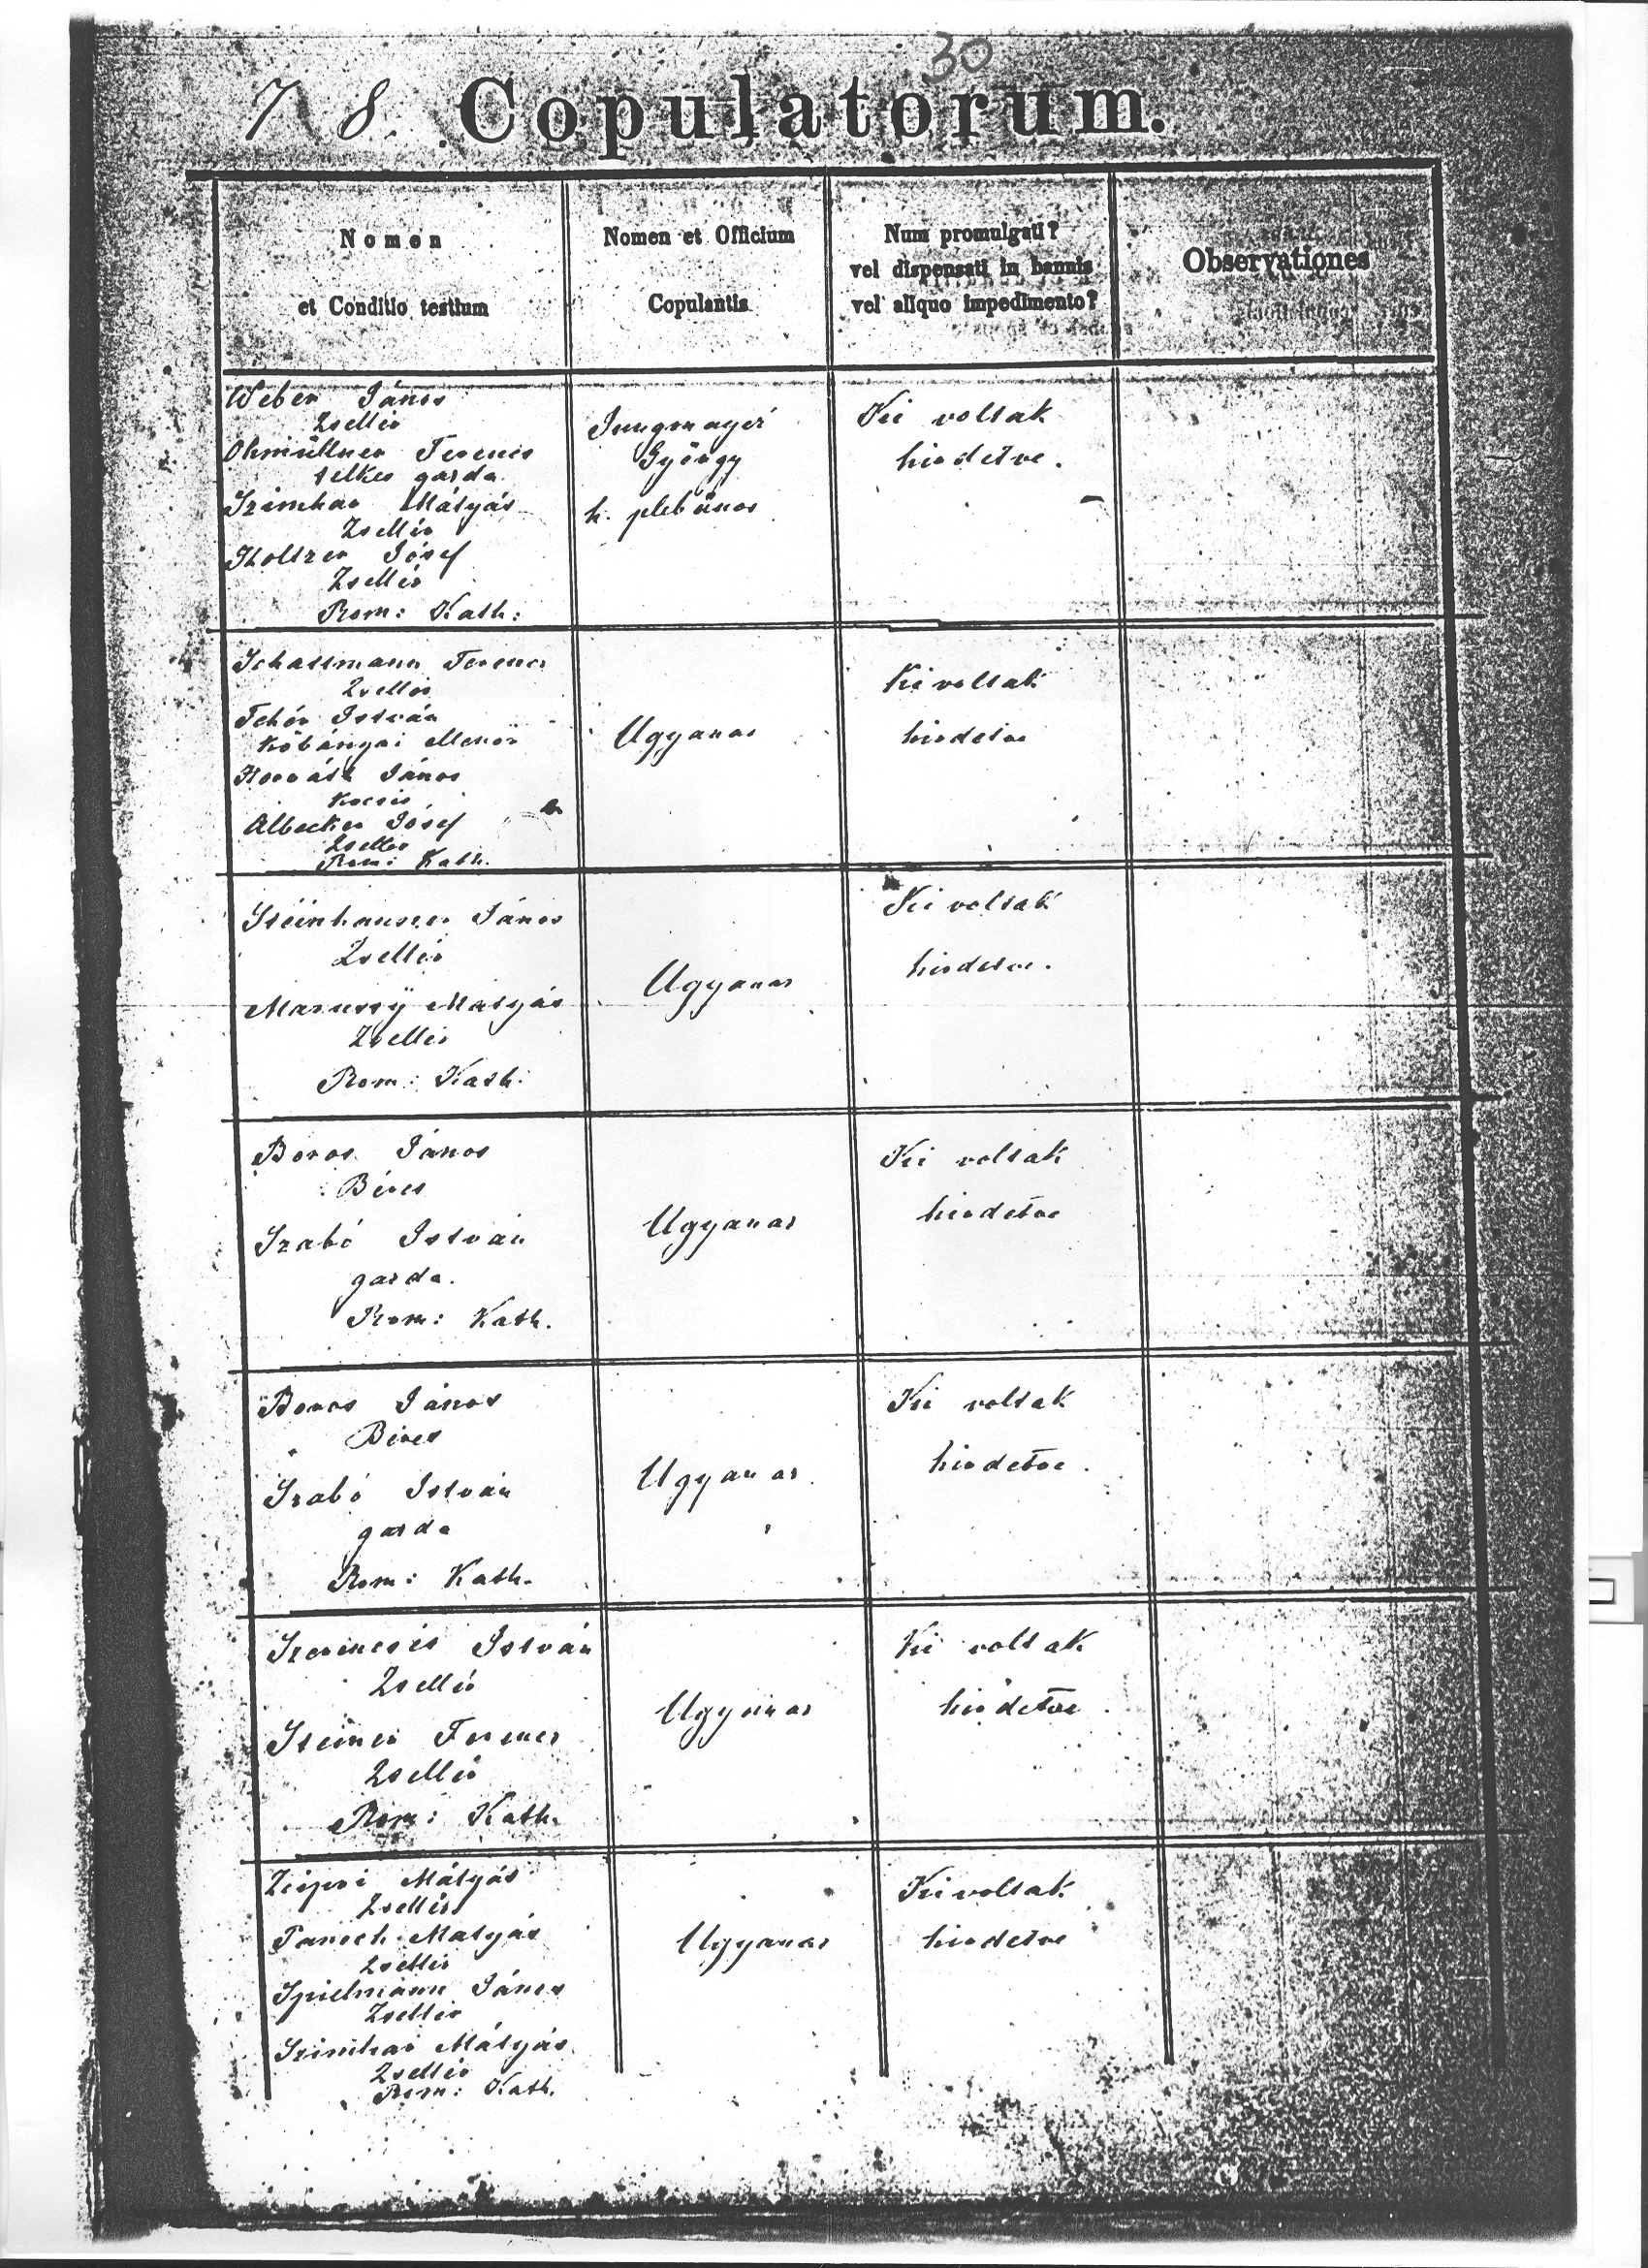 30
7 8. Copulatorum.
Nomen
et Conditio testium
Nomen et Officium
Copulantis
Num promulgati?
vel dispensati in bannis
vel aliquo impedimento?
Observationes
Weber János
Zsellér
Ohmüllner Ferencz
telkes gazda
Szimhar Mátyás
Zsellér
Holtzer Jósef
Zsellér
Rom: Kath:
Jungmayer
György
h. plébános
Ki voltak
hirdetve.
Schattmann Ferencz
Zsellér
Fehér István
Kőbányai
Horváth János
Kocsis
Albecker Jósef
Zsellér
Rom: Kath.
Ugyanaz
Ki voltak
hirdetve
Steinhauser János
Zsellér
Mátyás
Zsellér
Rom: Kath:
Ugyanaz
Ki voltak
hirdetve.
Boros János
Béres
Szabó István
gazda.
Rom: Kath.
Ugyanaz
Ki voltak
hirdetve
Boros János
Béres
Szabó István
gazda
Rom: Kath.
Ugyanaz
Ki voltak
hirdetve.
István
Zsellér
Steiner Ferencz
Zsellér
Rom: Kath.
Ugyanaz
Ki voltak
hirdetve
Mátyás
Zsellér
Mátyás
Zsellér
Spielmann János
Zsellér
Szimhar Mátyás
Zsellér
Rom: Kath.
Ugyanaz
Ki voltak
hirdetve